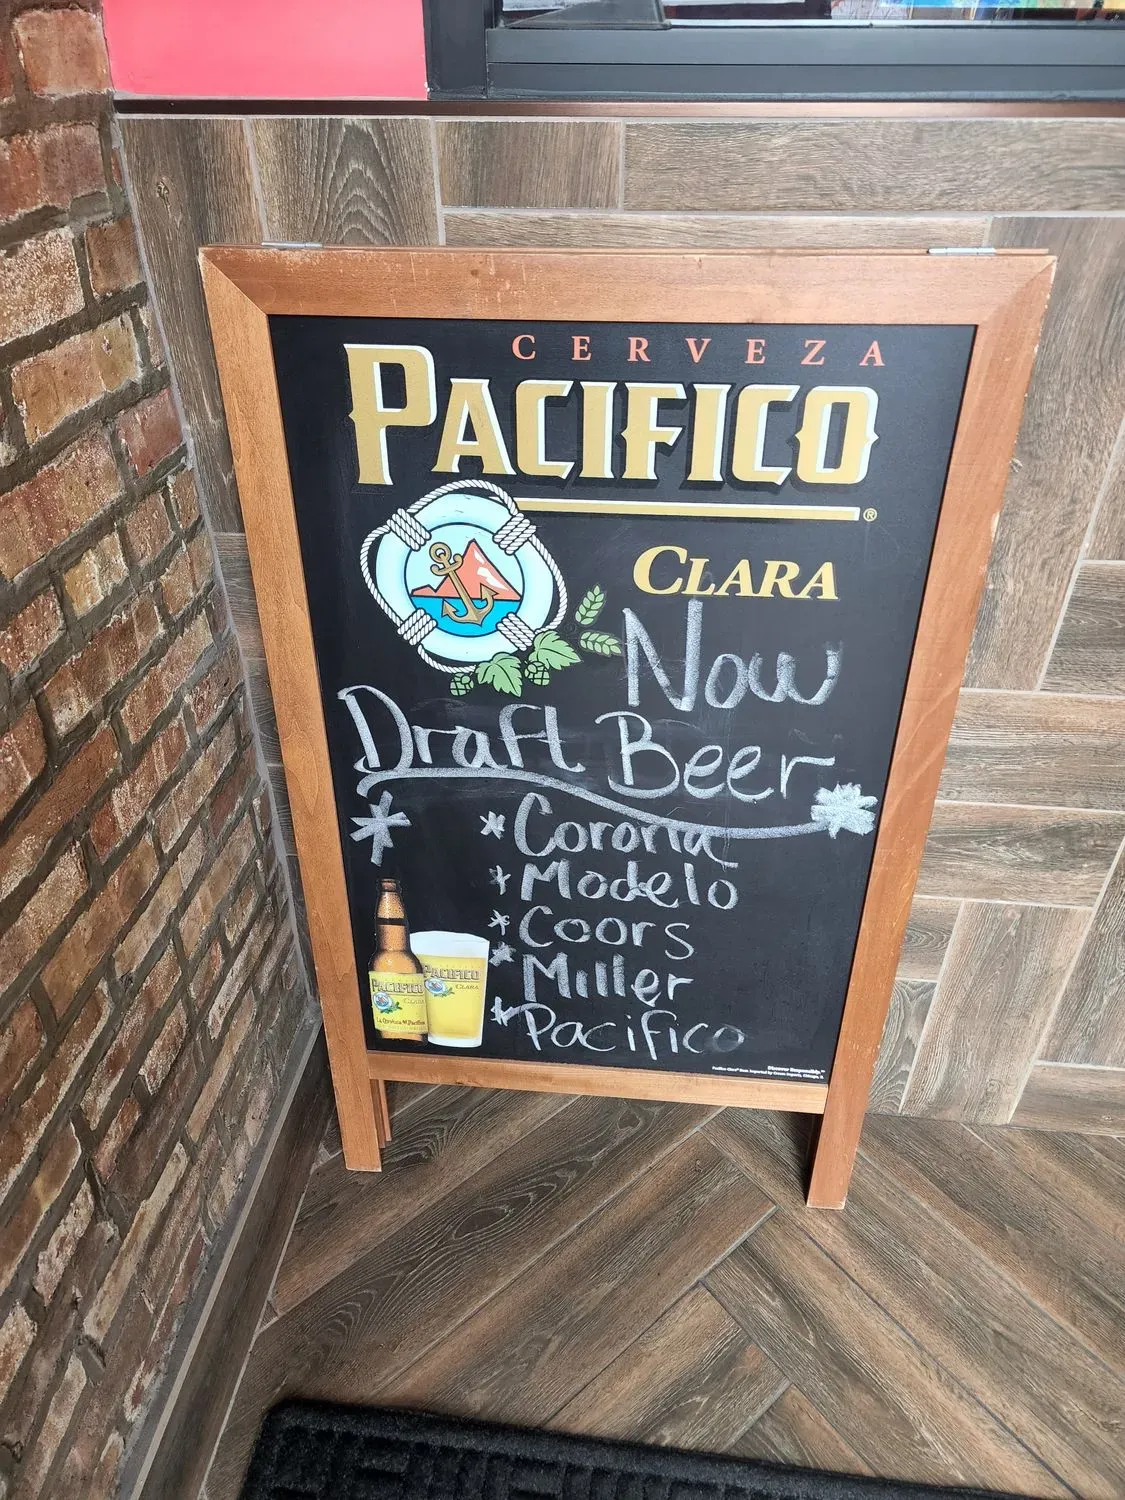 CERVEZA
PACIFICO
®
CLARA
Now
Draft Beer
* Corona
* Modelo
* Coors
* Miller
* Pacifico
PACIFICO
CLARA
PACIFICO
CLARA
Discover Responsibly.™